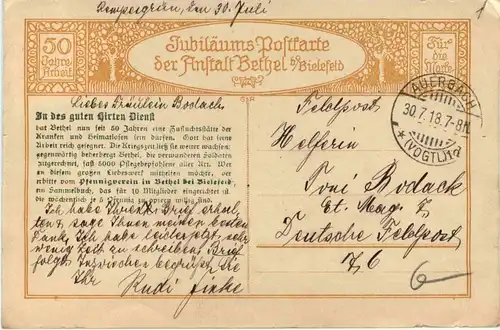 Rempesgrün, den 30. Juli
50 Jahre Arbeit
Jubiläums-Postkarte
der Anstalt Bethel b/Bielefeld
Für die Werke
Liebes Fräulein Bodack
In des guten Hirten Dienst
hat Bethel nun seit 50 Jahren eine Zufluchtsstätte der
Kranken und Heimatlosen sein dürfen. Gott hat seine
Arbeit reich gesegnet. Die Kriegszeit ließ sie weiter wachsen:
gegenwärtig beherbergt Bethel, die verwundeten Soldaten
ausgerechnet, fast 5000 Pflegebefohlene aller Art. Wer
an diesem großen Liebeswerk mithelfen möchte, der
erbitte vom Pfennigverein in Bethel bei Bielefeld
ein Sammelbuch, das für 10 Mitglieder eingerichtet ist,
die wöchentlich je 5 Pfennig zu opfern willig sind.
Ich habe Ihren Brief erhal-
ten & sage Ihnen meinen besten
Dank. Ich habe leider jetzt sehr
wenig Zeit zu schreiben. Brief
folgt. Inzwischen begrüßt Sie
Ihr
Rudi Finke
AUERBACH
30.7.18.7-8N.
*(VOGTL)1*
Feldpost
Helferin
Toni Bodack
Et. Mag. 7
Deutsche Feldpost
76
6
1